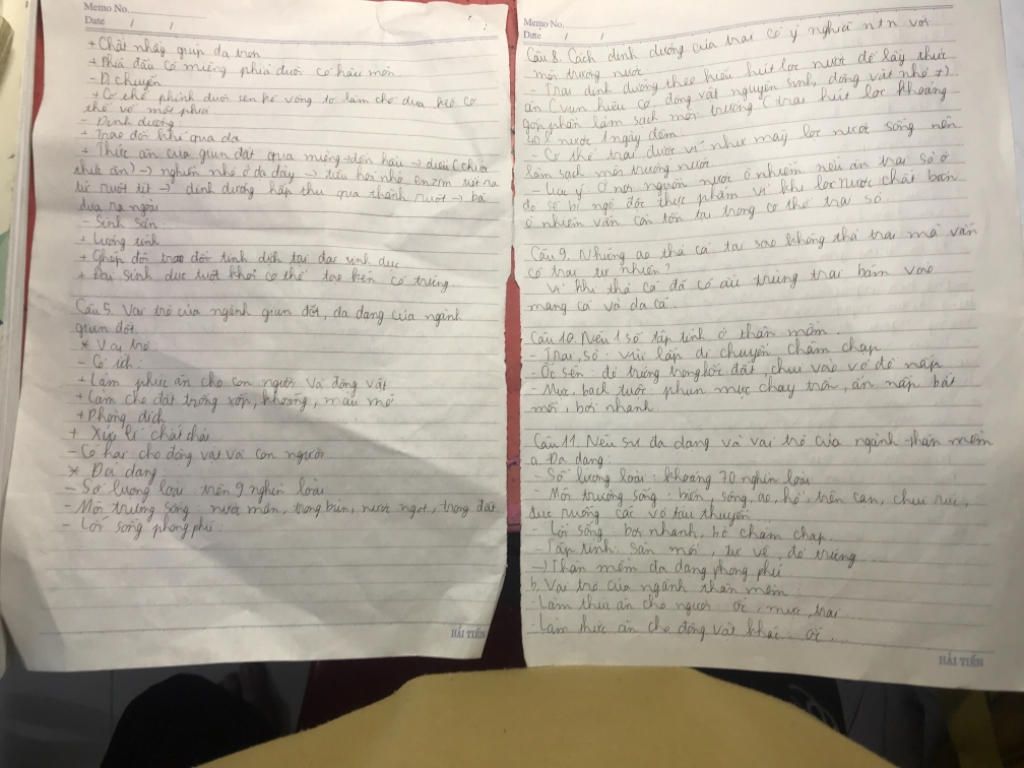 Memo No.
Date / /
+ Chất nhầy giúp da trơn
+ Phía đầu có miệng phía dưới có hậu môn
- Di chuyển
+ Cơ thể phình duỗi xen kẽ vòng tơ làm cho đưa kéo cơ
thể về một phía
- Dinh dưỡng
+ Trao đổi khí qua da
+ Thức ăn của giun đất qua miệng → đến hầu → diều (chứa
thức ăn) → nghiền nhỏ ở dạ dày → tiêu hoá nhờ enzim tiết ra
từ ruột tịt → dinh dưỡng hấp thu qua thành ruột → bã
đưa ra ngoài
- Sinh sản:
+ Lưỡng tính
+ Ghép đôi trao đổi tinh dịch tại đai sinh dục
+ Đai sinh dục tuột khỏi cơ thể tạo kén có trứng.
Câu 5. Vai trò của ngành giun đốt, đa dạng của ngành
giun đốt.
* Vai trò:
- Có ích:
+ Làm thức ăn cho con người và động vật
+ Làm cho đất trồng xốp, thoáng, màu mỡ
+ Phòng dịch
+ Xử lí chất thải
- Có hại cho động vật và con người
* Đa dạng
- Số lượng loài: trên 9 nghìn loài
- Môi trường sống: nước mặn, trong bùn, nước ngọt, trong đất
- Lối sống phong phú.
HẢI TIẾN
Memo No.
Date / /
Câu 8. Cách dinh dưỡng của trai có ý nghĩa ntn với
môi trường nước
- Trai dinh dưỡng theo kiểu hút lọc nước để lấy thức
ăn (vụn hữu cơ, động vật nguyên sinh, động vật nhỏ ≠)
góp phần làm sạch môi trường (trai hút lọc khoảng
40l nước 1 ngày đêm
- Cơ thể trai được ví như máy lọc nước sống nên
làm sạch môi trường nước
- Lưu ý: Ở nơi nguồn nước ô nhiễm nếu ăn trai sò ở
đó sẽ bị ngộ độc thực phẩm vì khi lọc nước chất bẩn
ô nhiễm vẫn còn tồn tại trong cơ thể trai sò.
Câu 9. Những ao thả cá tại sao không thả trai mà vẫn
có trai tự nhiên?
Vì khi thả cá đã có ấu trùng trai bám vào
mang cá và da cá.
Câu 10. Nêu 1 số tập tính ở thân mềm.
- Trai, sò: vùi lấp di chuyển chậm chạp
- Ốc sên: đẻ trứng trong hốc đất, chui vào vỏ để nấp
- Mực, bạch tuộc phun mực chạy trốn, ẩn nấp bắt
mồi, bơi nhanh.
Câu 11. Nêu sự đa dạng và vai trò của ngành thân mềm
a. Đa dạng:
- Số lượng loài: khoảng 70 nghìn loài
- Môi trường sống: biển, sông, ao, hồ, trên cạn, chui rúc,
đục ruỗng các vỏ tàu thuyền
- Lối sống: bơi nhanh, bò chậm chạp.
- Tập tính: săn mồi, tự vệ, đẻ trứng
→ Thân mềm đa dạng phong phú
b. Vai trò của ngành thân mềm:
- Làm thức ăn cho người: ốc, mực, trai
- Làm thức ăn cho động vật khác: ốc...
HẢI TIẾN